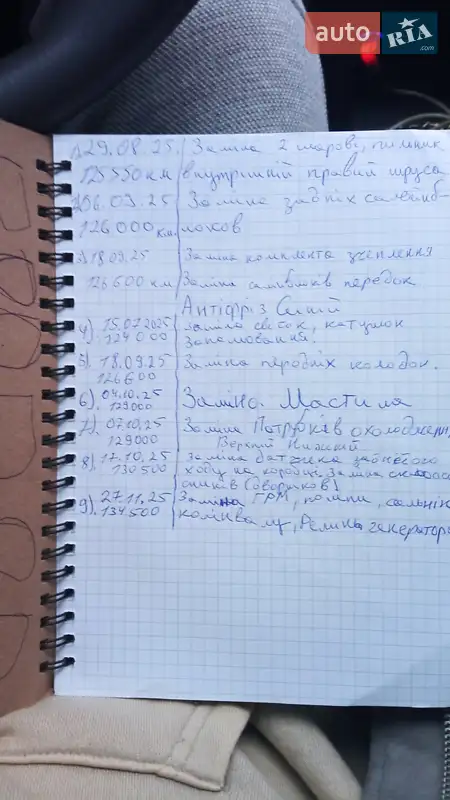 auto RIA .com
1). 29.08.25. Заміна 2 шарові, пильник
125550 км внутрішній правий шруса
2). 06.09.25 Заміна задніх салентб-
126000 км. локов
3). 18.09.25 Заміна комплекта зчеплення
126600 км Заміна передок
Антіфріз Синій
4). 15.07.2025 заміна свічок, катушок
124000 запалювання.
5). 18.09.25 Заміна передніх колодок.
126600
6). 04.10.25 Заміна Мастила
129000
7). 07.10.25 Заміна Патрубків охолодження
129000 Верхній Нижній
8). 17.10.25 заміна датчика заднього
130500 ходу на коробці, заміна
(дворніков)
9). 27.11.25 Заміна ГРМ, помпи, сальнік
134500 колінвалу, Ремінь генератора